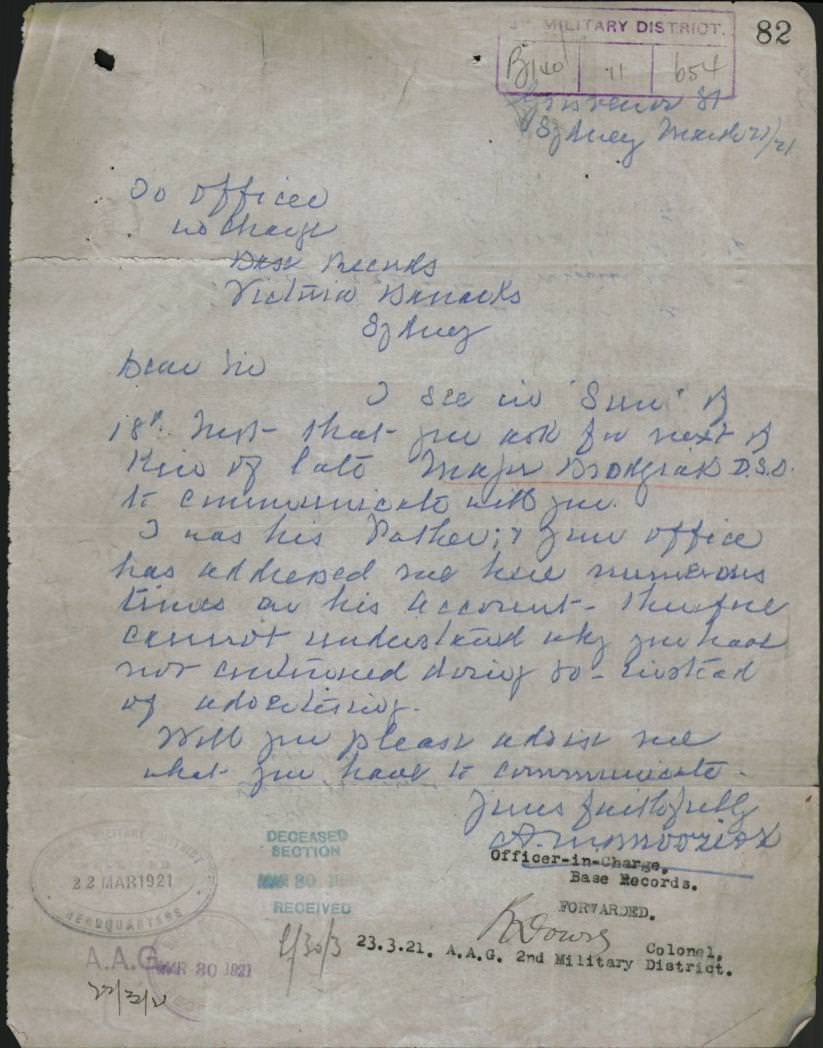 82
MILITARY DISTRICT.
B140 11 654
Grosvenor St
Sydney March 21/21
To Officer
in Charge
Base Records
Victoria Barracks
Sydney
Dear Sir
I see in "Sun" of
18th Inst - that you ask for next of
Kin of late Major D.S.O.
to communicate with you.
I was his Father; & your office
has addressed me here numerous
times on his account - therefore
cannot understand why you have
not continued doing so - instead
of advertising.
Will you please advise me
what you have to communicate -
Yours faithfully
Officer-in-Charge,
Base Records.
FORWARDED.
Colonel.
23.3.21. A.A.G. 2nd Military District.
MILITARY DISTRICT
22 MAR 1921
HEADQUARTERS
DECEASED
SECTION
MAR 30
RECEIVED
A.A.G.
MAR 30 1921